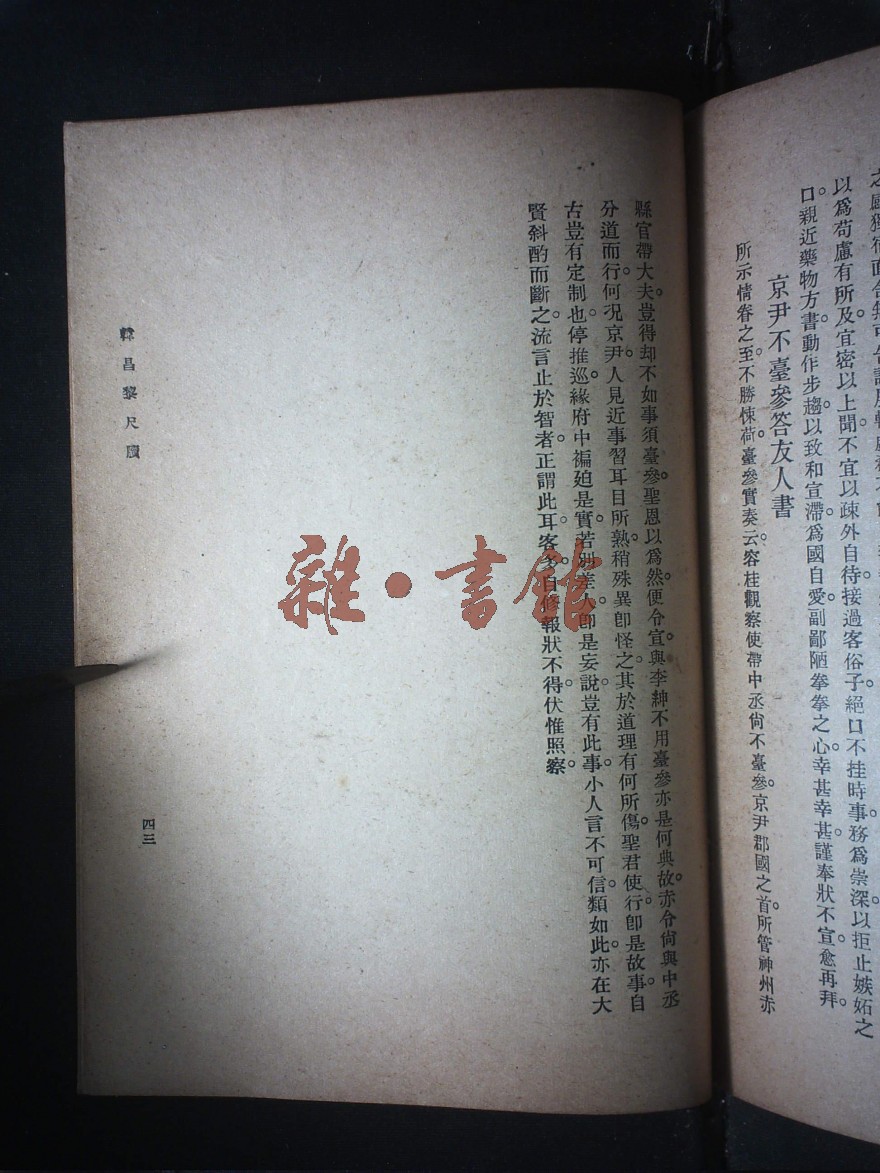 以爲苟慮有所及。宜密以上聞。不宜以疎外自待。接過客俗子。絕口不挂時事。務爲崇深。以拒止嫉妬之
口。親近藥物方書。動作步趨。以致和宣滯。爲國自愛。副鄙陋拳拳之心。幸甚幸甚。謹奉狀不宣。愈再拜。
京尹不臺參答友人書
所示情眷之至。不勝悚荷。臺參實奏云。容桂觀察使帶中丞。尙不臺參。京尹郡國之首。所管神州赤
縣官帶大夫。豈得却不如事須臺參。聖恩以爲然。便令宣與李紳不用臺參。亦是何典故。赤令尙與中丞
分道而行。何况京尹。人見近事習耳目所熟。稍殊異卽怪之。其於道理有何所傷。聖君使行卽是故事。自
古豈有定制也。停推巡。緣府中褊廹是實。若別差人卽是妄說。豈有此事。小人言不可信類如此。亦在大
賢斜酌而斷之。流言止於智者。正謂此耳。客多自修報狀不得。伏惟照察。
韓昌黎尺牘
四三
雜·書館